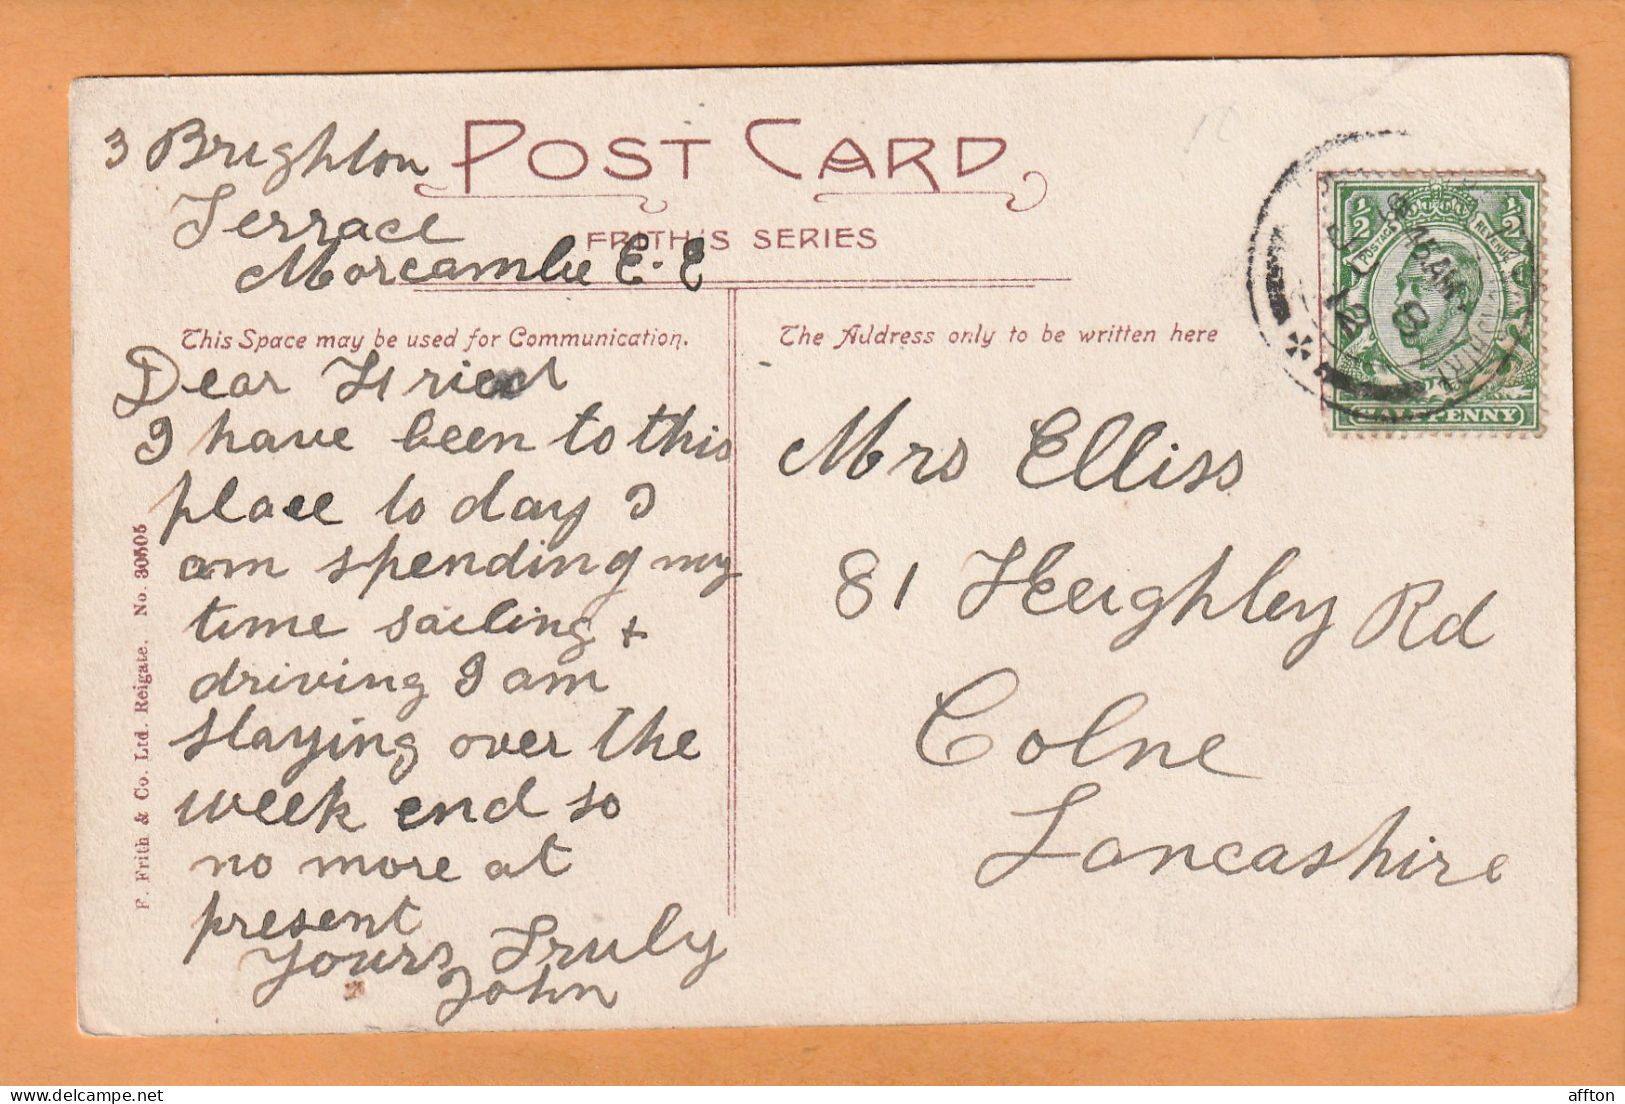 3 Brighton
Terrace
Morcambe E. E
POST CARD
FRITH'S SERIES
This Space may be used for Communication.
Dear Friend
I have been to this
place to day I
am spending my
time sailing +
driving I am
staying over the
week end so
no more at
present
Yours Truly
John
F. Frith & Co. Ltd. Reigate. No. 30505
The Address only to be written here
Mrs Elliss
81 Keighley Rd
Colne
Lancashire
1/2 1/2
POSTAGE REVENUE
HALFPENNY
45AM
12
affton
delcampe.net